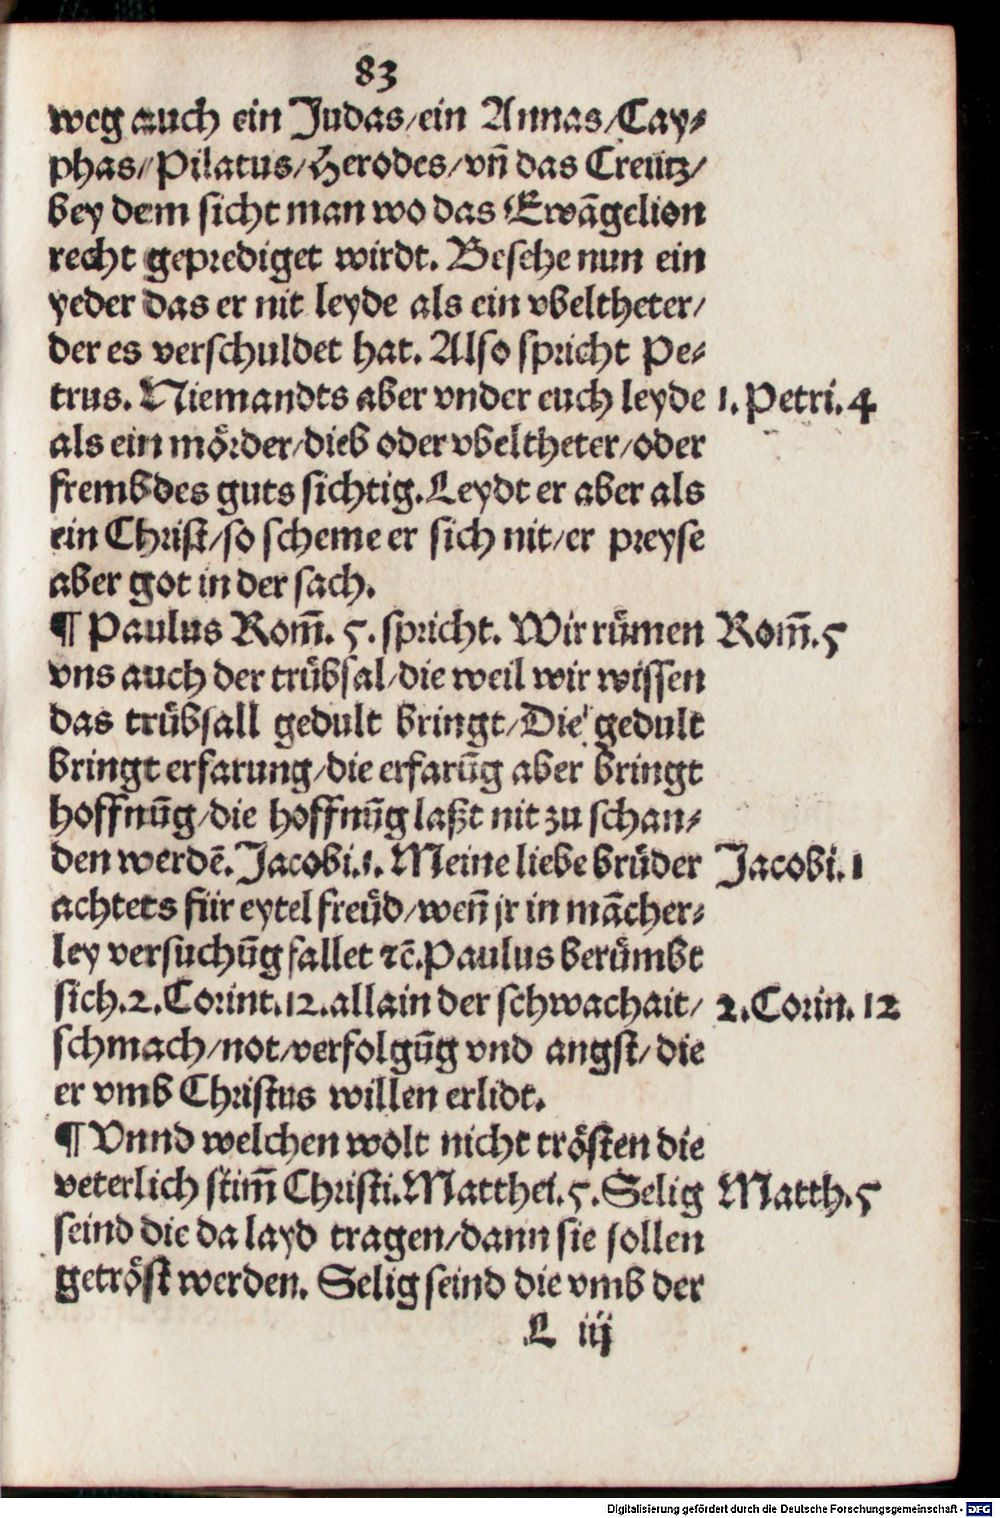 83
weg auch ein Judas/ein Annas/Cay⸗
phas/Pilatus/Herodes/vñ das Creütz/
bey dem sicht man wo das Ewãgelion
recht geprediget wirdt. Besehe nun ein
yeder das er nit leyde als ein vbeltheter/
der es verschuldet hat. Also spricht Pe⸗
trus. Niemandts aber vnder euch leyde 1. Petri. 4
als ein mörder/dieb oder vbeltheter/oder
frembdes guts sichtig. Leydt er aber als
ein Christ/so scheme er sich nit/er preyse
aber got in der sach.
¶ Paulus Rom̃. 5. spricht. Wir rümen Rom̃. 5
vns auch der trübsal/die weil wir wissen
das trübsall gedult bringt/Die gedult
bringt erfarung/die erfarũg aber bringt
hoffnũg/die hoffnũg laßt nit zu schan⸗
den werdẽ. Jacobi. 1. Meine liebe brüder Jacobi. 1
achtets für eytel freüd/weñ jr in mãcher⸗
ley versuchũg fallet ⁊c̃. Paulus berümbt
sich. 2. Corint. 12. allain der schwachait/ 2. Corin. 12
schmach/not/verfolgũg vnd angst/die
er vmb Christus willen erlidt.
¶ Vnnd welchen wolt nicht trösten die
veterlich stim̃ Christi. Matthei. 5. Selig Matth. 5
seind die da layd tragen/dann sie sollen
getröst werden. Selig seind die vmb der
L iij
Digitalisierung gefördert durch die Deutsche Forschungsgemeinschaft - DFG